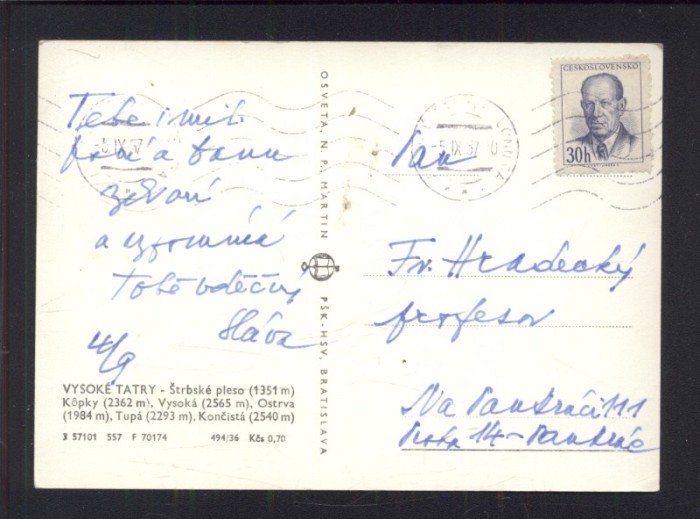 Tebe i mil.
paní a
zdraví
a vzpomíná
Tobě vděčný
Sláva
4/9
VYSOKÉ TATRY - Štrbské pleso (1351 m)
Kôpky (2362 m), Vysoká (2565 m), Ostrva
(1984 m), Tupá (2293 m), Končistá (2540 m)
3 57101 557 F 70174 494/36 Kčs 0,70
OSVETA, N. P. MARTIN
PSK-HSV, BRATISLAVA
-5.IX.57
-5.IX.57
ČESKOSLOVENSKO
30h
Pan
Fr. Hradecký
profesor
Na Pankráci 111
Praha 14 - Pankrác